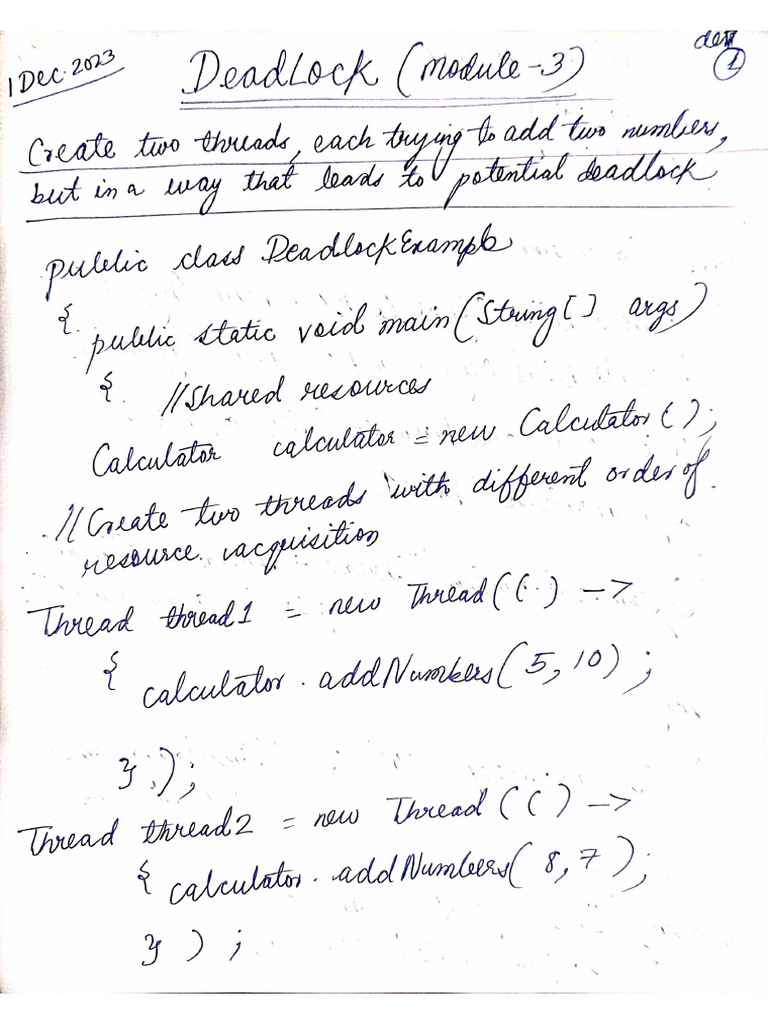 1 Dec. 2023
DeadLock (Module-3)
1
Create two threads, each trying to add two numbers,
but in a way that leads to potential deadlock
public class DeadlockExample
{
public static void main(String[] args)
{ //Shared resources
Calculator calculator = new Calculator();
//Create two threads with different order of
resource acquisition
Thread thread1 = new Thread(() ->
{ calculator.addNumbers(5,10);
});
Thread thread2 = new Thread(() ->
{ calculator.addNumbers(8,7);
});